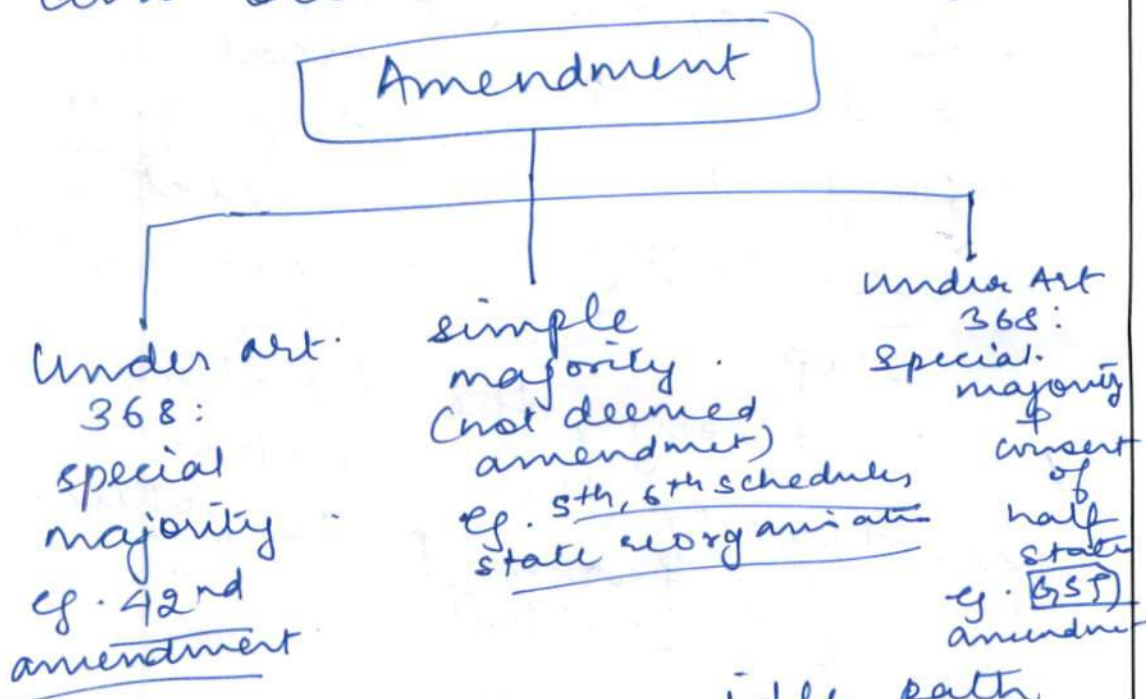 Amendment
Under art.
368:
special
majority
eg. 42nd
amendment
simple
majority
(not deemed
amendmet)
eg. 5th, 6th schedules
state reorganisatn
Under Art
368:
special
majority
+
consent
of
half
state
eg. GST
amendmet
path